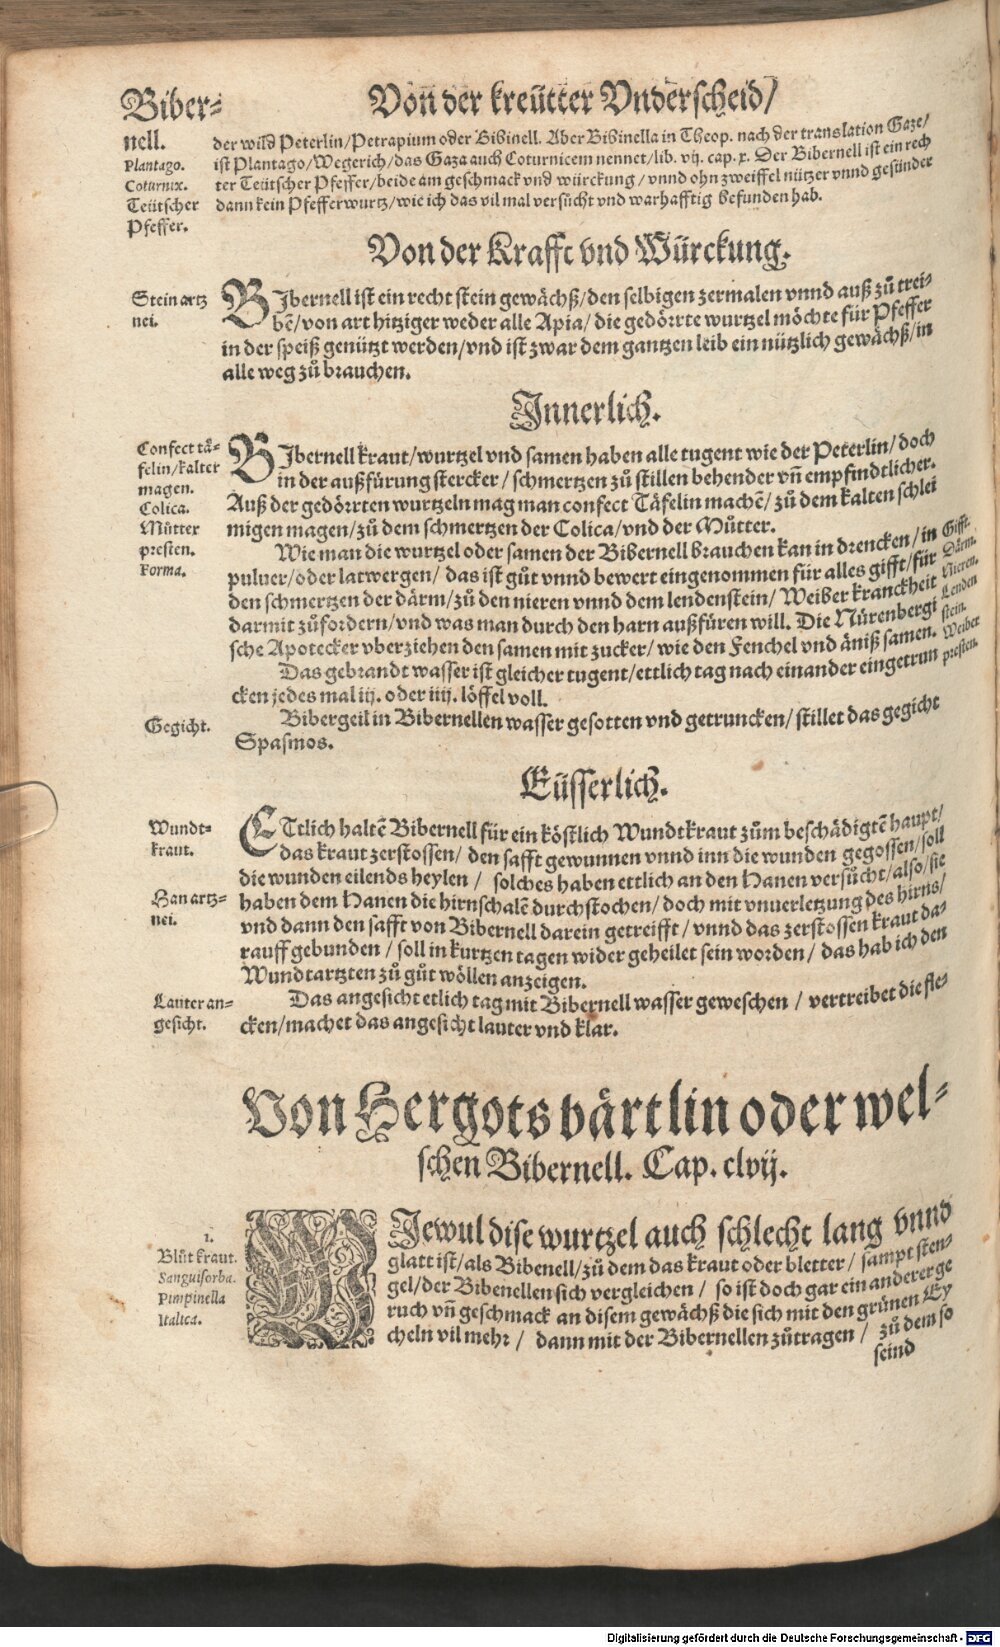 Von̄ der kreütter Vnderscheid/
Biber-
nell.
Plantago.
Coturnix.
Teütscher
Pfeffer.
der wild Peterlin/Petrapium oder Bibinell. Aber Bibinella in Theop. nach der translation Gaze/
ist Plantago/Wegerich/das Gaza auch Coturnicem nennet/lib. vij. cap. x. Der Bibernell ist ein rech
ter Teütscher Pfeffer/beide am geschmack vnd würckung/vnnd ohn zweiffel nützer vnnd gesünder
dann kein Pfefferwurtz/wie ich das vil mal versůcht vnd warhafftig befunden hab.
Von der Krafft vnd Würckung.
Stein artz
nei.
BIbernell ist ein recht stein gewächß/den selbigen zermalen vnnd auß zů trei-
bẽ/von art hitziger weder alle Apia/die gedörrte wurtzel möchte für Pfeffer
in der speiß genützt werden/vnd ist zwar dem gantzen leib ein nützlich gewächß/in
alle weg zů brauchen.
Innerlich.
Confect tä-
felin/kalter
magen.
Colica.
Můtter
presten.
Forma.
BIbernell kraut/wurtzel vnd samen haben alle tugent wie der Peterlin/doch
in der außfürung stercker/schmertzen zů stillen behender vñ empfindtlicher.
Auß der gedörrten wurtzeln mag man confect Täfelin machẽ/zů dem kalten schlei
migen magen/zů dem schmertzen der Colica/vnd der Můtter.
Wie man die wurtzel oder samen der Bibernell brauchen kan in drencken/in
puluer/oder latwergen/das ist gůt vnnd bewert eingenommen für alles gifft/für
den schmertzen der därm/zů den nieren vnnd dem lendenstein/Weiber kranckheit
darmit zůfordern/vnd was man durch den harn außfüren will. Die Nürenbergi
sche Apotecker vberziehen den samen mit zucker/wie den Fenchel vnd äniß samen.
Gifft.
Därm.
Nieren.
Lenden
stein.
Weiber
presten.
Das gebrandt wasser ist gleicher tugent/ettlich tag nach einander eingetrun
cken jedes mal iij. oder iiij. löffel voll.
Gegicht.
Bibergeil in Bibernellen wasser gesotten vnd getruncken/stillet das gegicht
Spasmos.
Eüsserlich.
Wundt-
kraut.
Han artz-
nei.
ETtlich haltẽ Bibernell für ein köstlich Wundtkraut zům beschädigtẽ haupt/
das kraut zerstossen/den safft gewunnen vnnd inn die wunden gegossen/soll
die wunden eilends heylen/solches haben ettlich an den Hanen versůcht/also/sie
haben dem Hanen die hirnschalẽ durchstochen/doch mit vnuerletzung des hirns/
vnd dann den safft von Bibernell darein getreifft/vnnd das zerstossen kraut da-
rauff gebunden/soll in kurtzen tagen wider geheilet sein worden/das hab ich den
Wundtartzten zů gůt wöllen anzeigen.
Lauter an-
gesicht.
Das angesicht etlich tag mit Bibernell wasser geweschen/vertreibet die fle-
cken/machet das angesicht lauter vnd klar.
Von Hergots bärtlin oder wel-
schen Bibernell. Cap. clvij.
1.
Blůt kraut.
Sanguisorba.
Pimpinella
Italica.
WIewul dise wurtzel auch schlecht lang vnnd
glatt ist/als Bibenell/zů dem das kraut oder bletter/sampt sten-
gel/der Bibenellen sich vergleichen/so ist doch gar ein anderer ge
ruch vñ geschmack an disem gewächß die sich mit den grünen Ey
cheln vil mehr/dann mit der Bibernellen zůtragen/zů dem so
seind
Digitalisierung gefördert durch die Deutsche Forschungsgemeinschaft - DFG